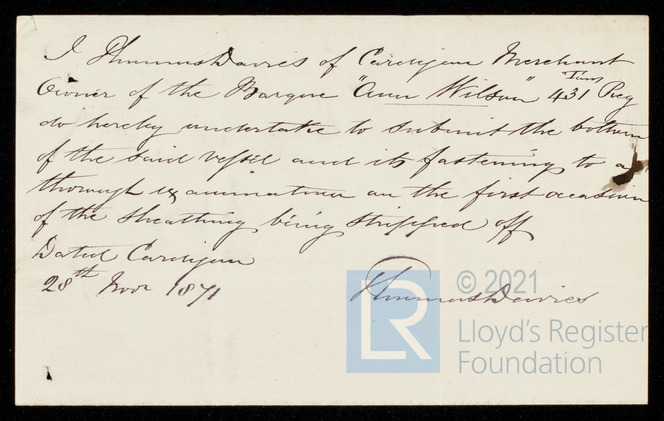 I Thomas Davies of Cardigan Merchant
Owner of the Barque "Ann Wilson" 431 Tons Reg
do hereby undertake to submit the bottom
of the said vessel and its fastenings to a
thorough examination on the first occasion
of the sheathing being stripped off
Dated Cardigan
28th Novr 1871
Thomas Davies
LR
© 2021
Lloyd's Register
Foundation